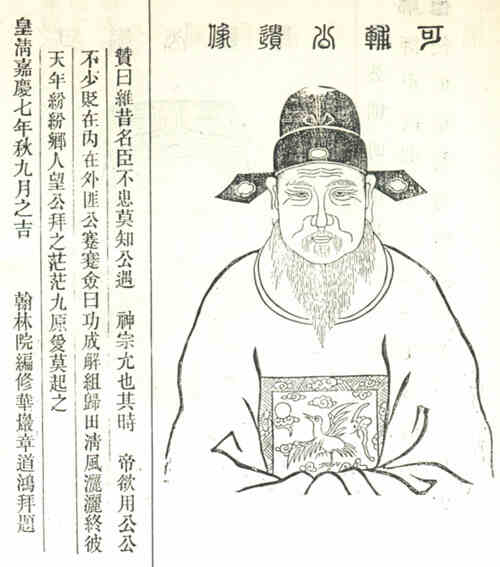 可公遺像
贊曰維昔名臣不思莫知公遇 神宗允也其時 帝欲用公公
不少貶在內在外匪公蹇蹇僉曰功成解組歸田清風灑灑終彼
天年紛紛鄉人望公拜之茫茫九原愛莫起之
皇清嘉慶七年秋九月之吉 翰林院編修華巖章道鴻拜題